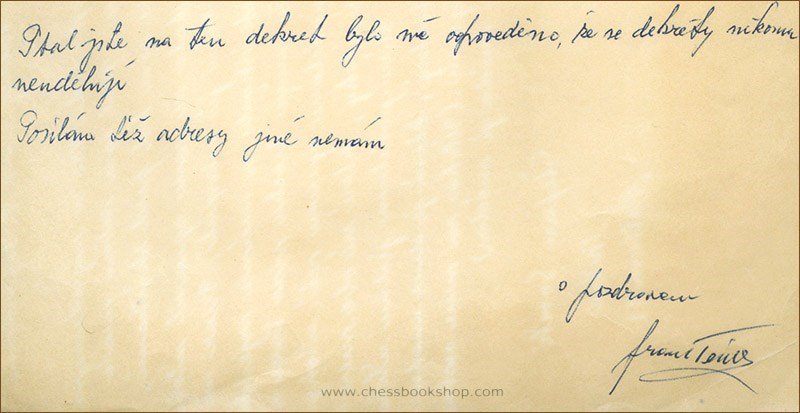 Ptal jste na ten dekret bylo mě odpoveděno, že se dekréty nikomu
neudělují
Posílám též adresy jiné nemám
s pozdravem
www.chessbookshop.com